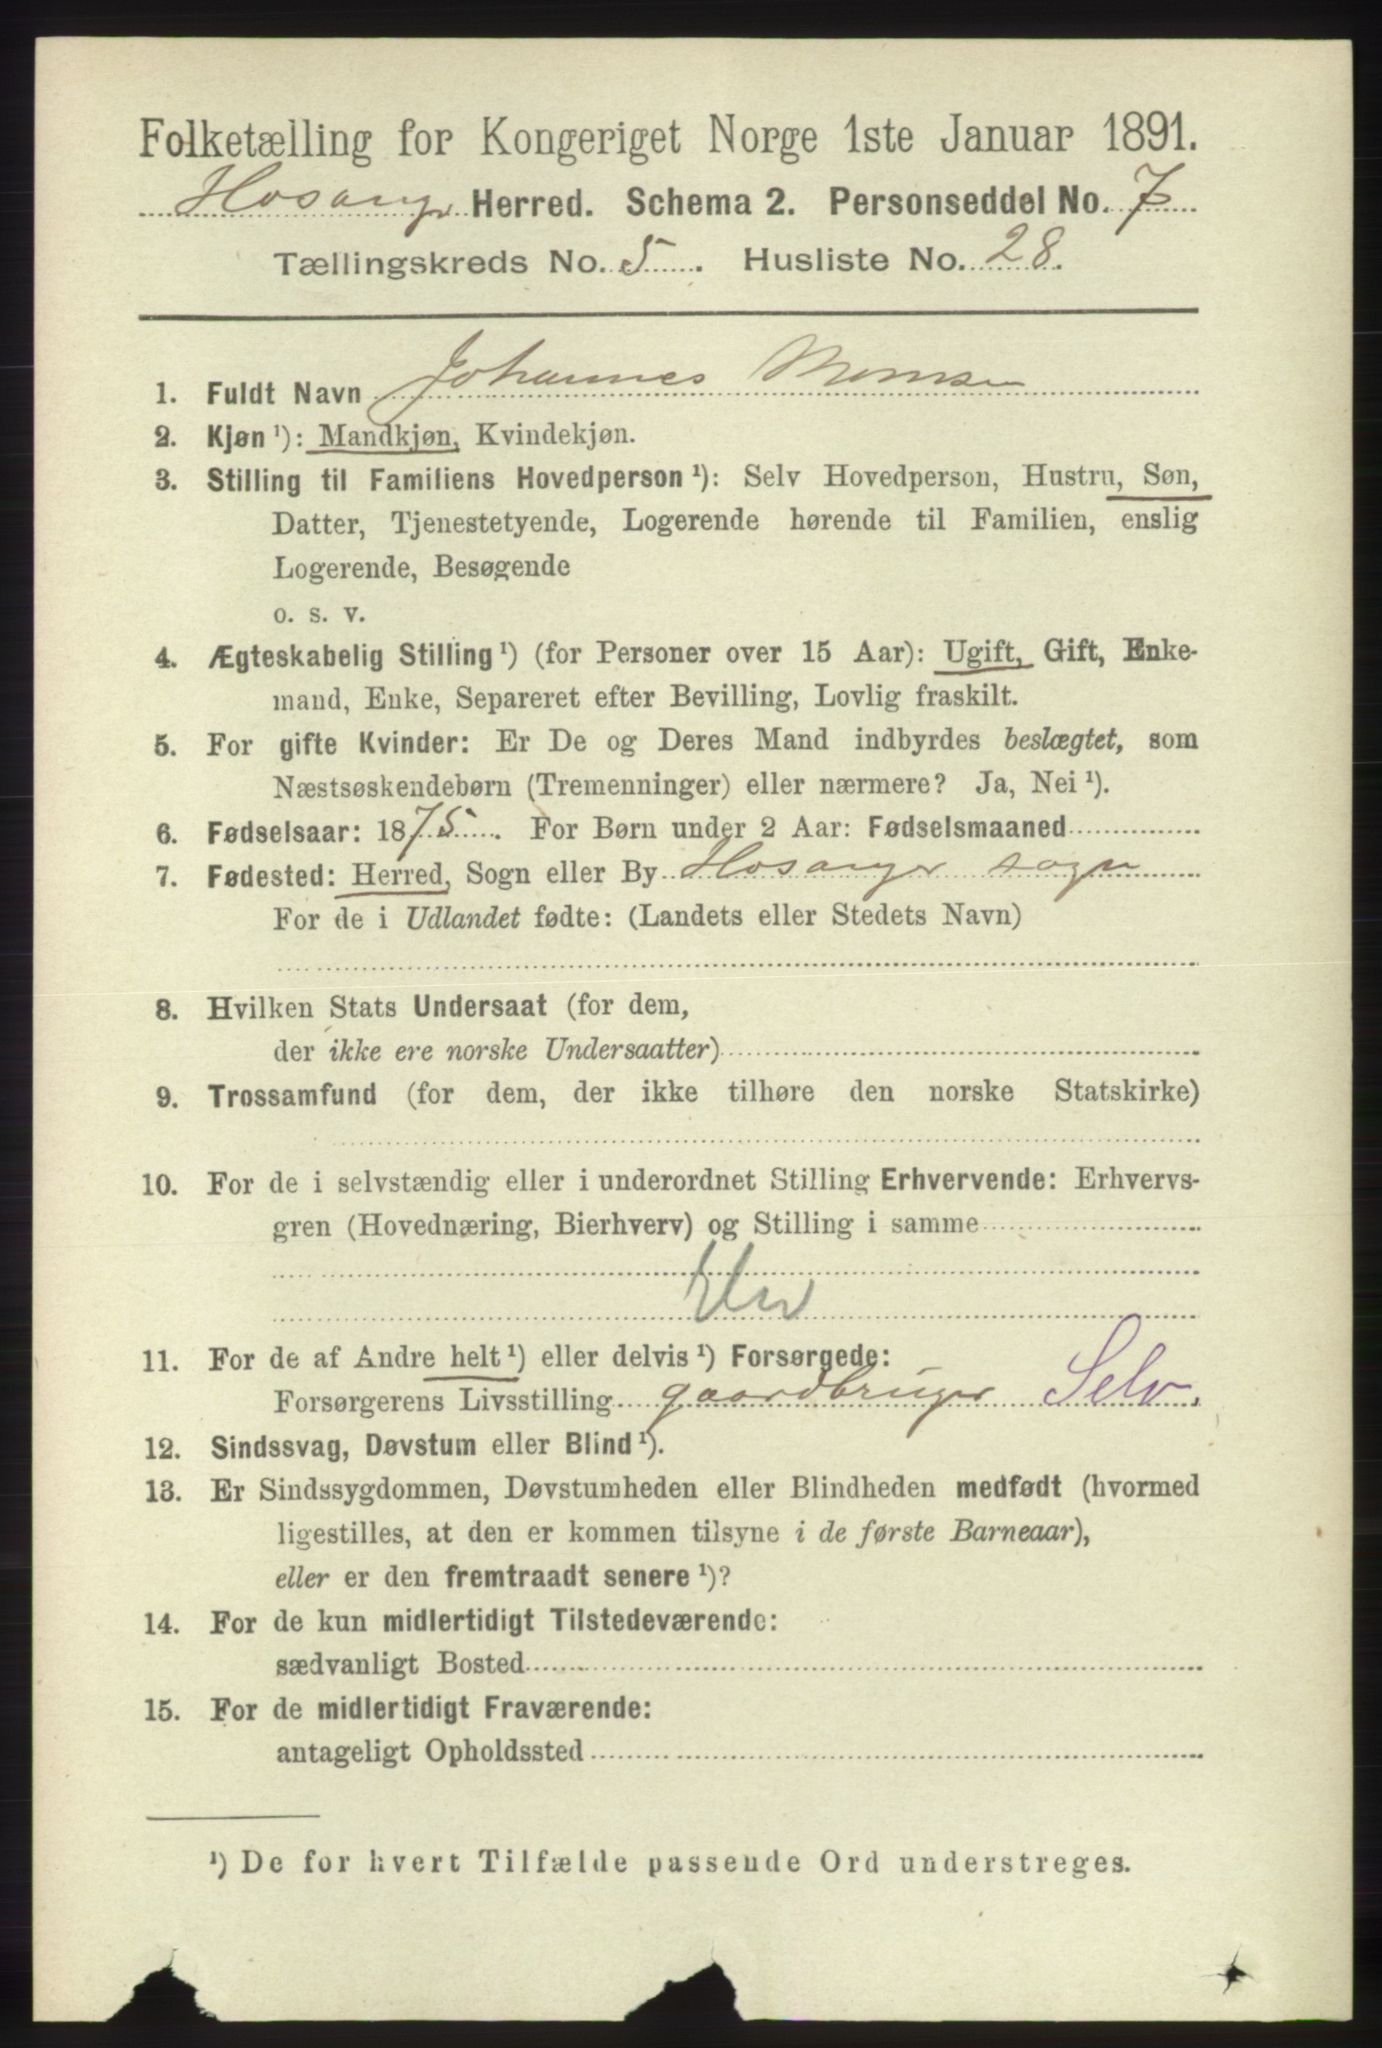 Folketælling for Kongeriget Norge 1ste Januar 1891.
Hosanger Herred. Schema 2. Personseddel No. 7
Tællingskreds No. 5. Husliste No. 28.
1. Fuldt Navn Johannes Monsen
2. Kjøn ¹): Mandkjøn, Kvindekjøn.
3. Stilling til Familiens Hovedperson ¹): Selv Hovedperson, Hustru, Søn,
Datter, Tjenestetyende, Logerende hørende til Familien, enslig
Logerende, Besøgende
o. s. v.
4. Ægteskabelig Stilling ¹) (for Personer over 15 Aar): Ugift, Gift, Enke-
mand, Enke, Separeret efter Bevilling, Lovlig fraskilt.
5. For gifte Kvinder: Er De og Deres Mand indbyrdes beslægtet, som
Næstsøskendebørn (Tremenninger) eller nærmere? Ja, Nei ¹).
6. Fødselsaar: 1875. For Børn under 2 Aar: Fødselsmaaned
7. Fødested: Herred, Sogn eller By Hosanger sogn
For de i Udlandet fødte: (Landets eller Stedets Navn)
8. Hvilken Stats Undersaat (for dem,
der ikke ere norske Undersaatter)
9. Trossamfund (for dem, der ikke tilhøre den norske Statskirke)
10. For de i selvstændig eller i underordnet Stilling Erhvervende: Erhvervs-
gren (Hovednæring, Bierhverv) og Stilling i samme
11. For de af Andre helt ¹) eller delvis ¹) Forsørgede:
Forsørgerens Livsstilling gaardbruger Selv.
12. Sindssvag, Døvstum eller Blind ¹).
13. Er Sindssygdommen, Døvstumheden eller Blindheden medfødt (hvormed
ligestilles, at den er kommen tilsyne i de første Barneaar),
eller er den fremtraadt senere ¹)?
14. For de kun midlertidigt Tilstedeværende:
sædvanligt Bosted
15. For de midlertidigt Fraværende:
antageligt Opholdssted
¹) De for hvert Tilfælde passende Ord understreges.